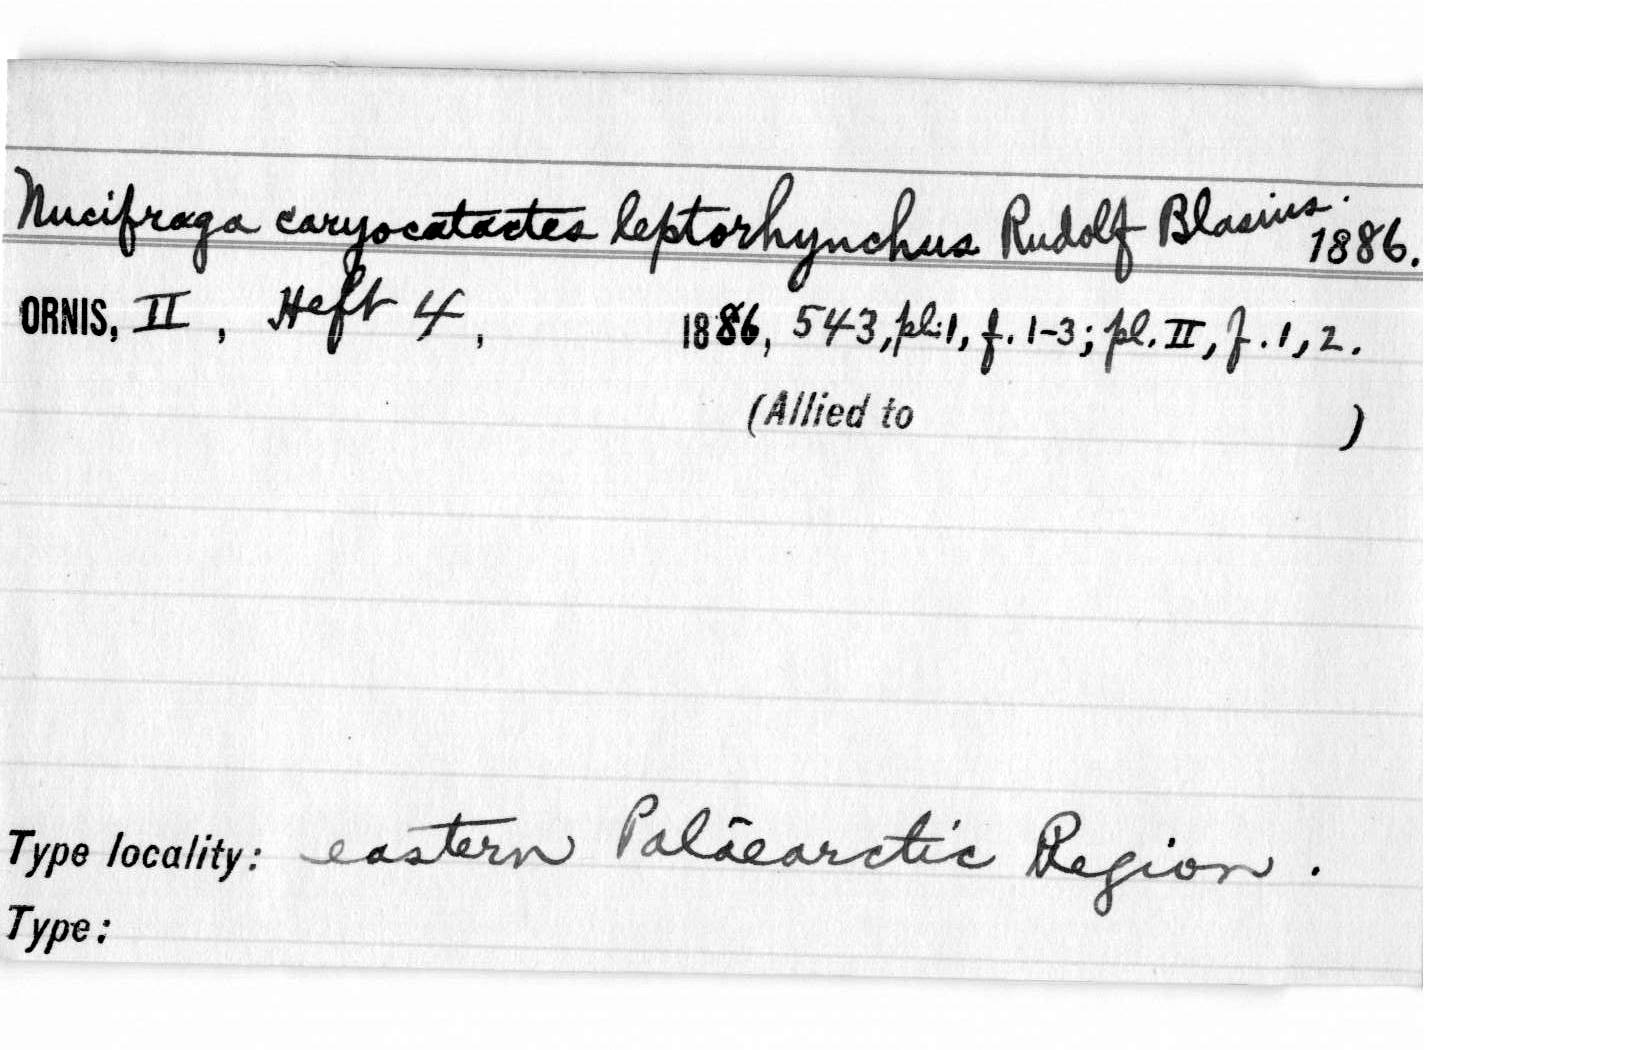 Nucifraga caryocatactes leptorhynchus Rudolf Blasius. 1886.
ORNIS, II, Heft 4, 1886, 543, pl. 1, f. 1-3; pl. II, f. 1, 2.
(Allied to )
Type locality: eastern Palāearctic Region.
Type: